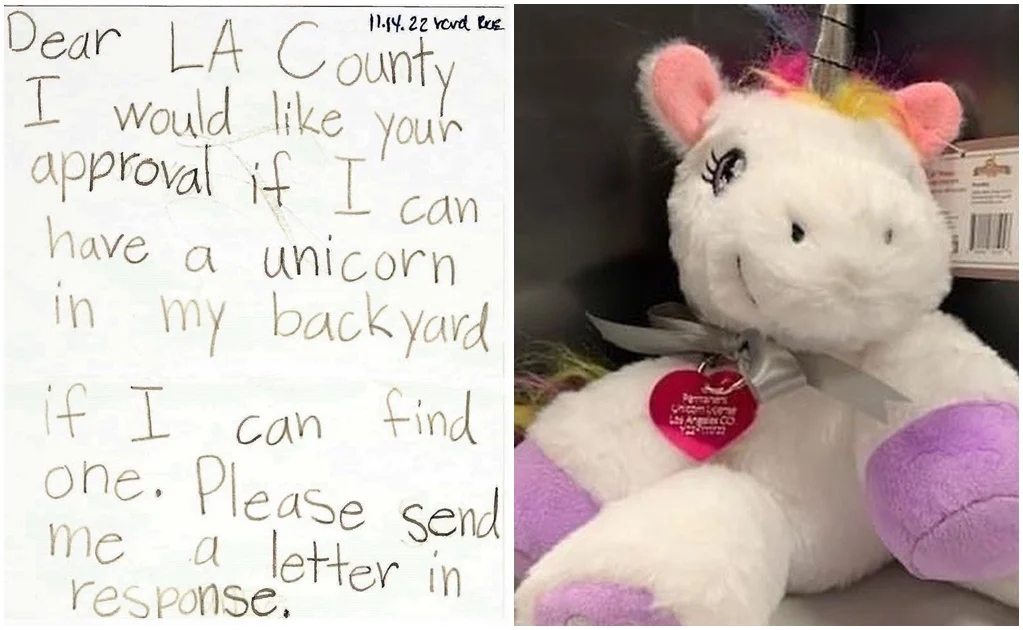 11.14.22 rcvd
Dear LA County
I would like your
approval if I can
have a unicorn
in my backyard
if I can find
one. Please send
me a letter in
response.
Permanent
Unicorn License
Los Angeles CO.